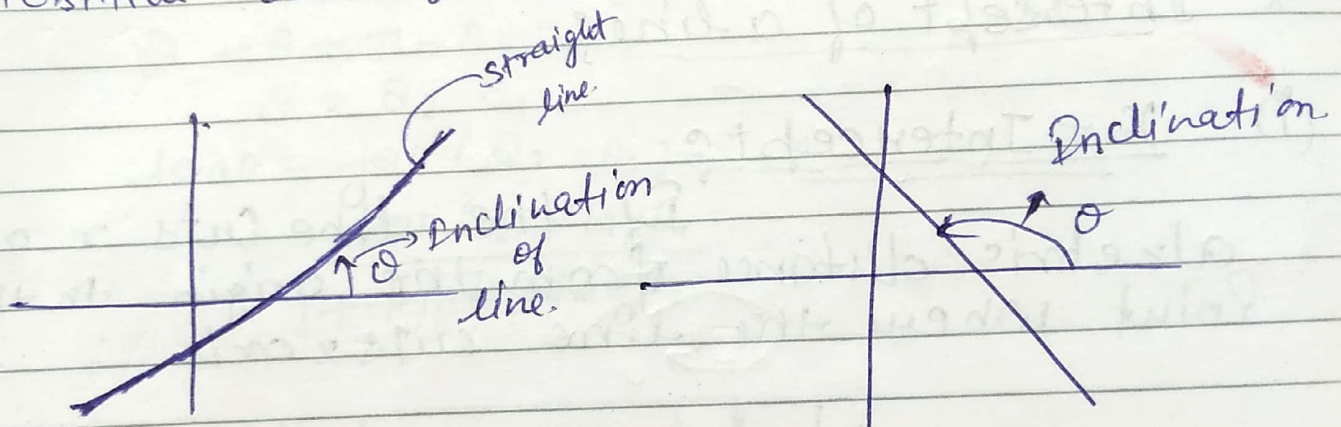 straight
line.
θ Inclination
of
line.
Inclination
θ